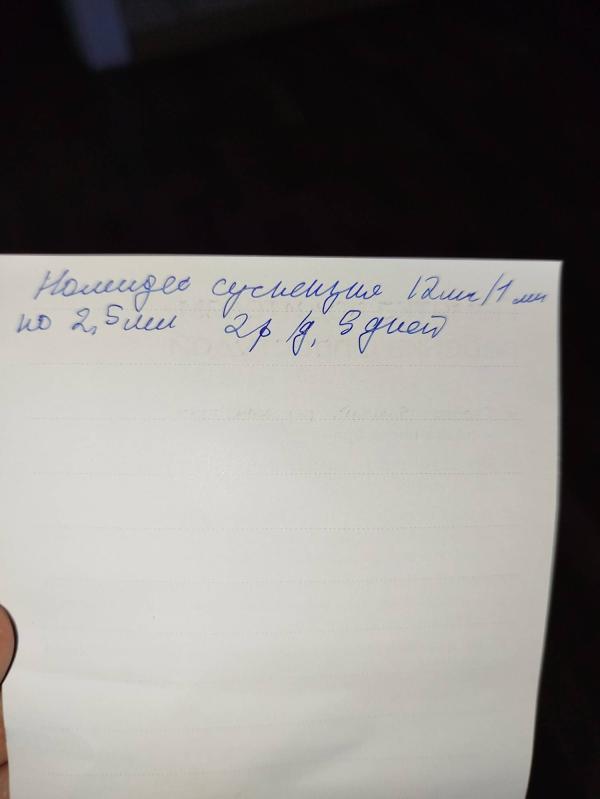 Номидес суспензия 12мг/1мл
по 2,5мл 2р/д, 5 дней